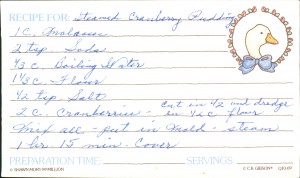 RECIPE FOR: Steamed Cranberry Pudding
1 C. Molasses
2 tsp. Soda
1/3 C. Boiling Water
1 1/3 C. Flour
1/2 tsp Salt
2 C. Cranberries - Cut in 1/2 and dredge in 1/2 C flour
Mix all - put in Mold - steam
1 hr. 15 min. Cover
PREPARATION TIME: SERVINGS:
© SHAWN MORY McMILLION © C.R. GIBSON®